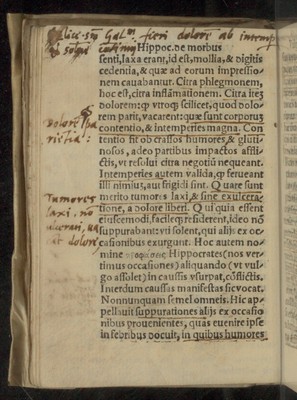 fieri dolore ab
Hippoc. de morbus
senti, laxa erant, id est, mollia, & digitis
cedentia, & quæ ad eorum impressio-
nem cauabantur. Citra phlegmonem,
hoc est, citra inflãmationem. Citra itẽ
dolorem: vtroq; scilicet, quod dolo-
rem parit, vacarent: quæ sunt corporũ
contentio, & intemperies magna. Con
tentio fit ob crassos humores & gluti-
nosos, adeo partibus impactos affli-
ctis, vt resolui citra negotiũ nequeant.
Intemperies autem valida, q ferueant
illi nimius, aut frigidi sint. Quare sunt
merito tumores laxi & sine exulcera-
tione, a dolore liberi. Quia essent
eiuscemodi, facile residerent, ideo nõ
suppurabant: vti solent, qui alijs ex oc-
casionibus exurgunt. Hoc autem no-
mine Hippocrates (nos ver-
timus occasiones) aliquando (vt vul-
go assolet) in caussis vsurpat,
Interdum caussas manifestas sic vocat.
Nonnunquam semel omneis. Hic ap-
pellauit suppurationes alijs ex occasio
nibus prouenientes, quas euenire ipse
in febribus docuit, in quibus humores
Tumores
laxi. nõ
dolore